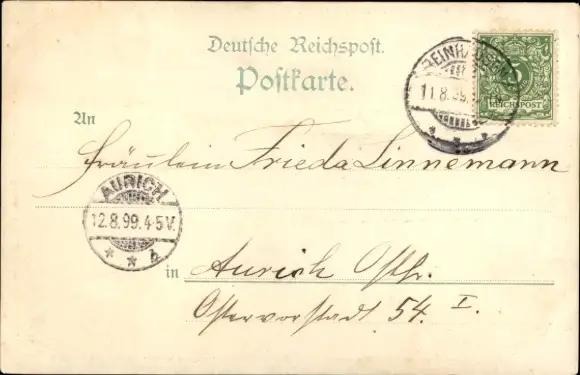 Deutsche Reichspost.
Postkarte.
REINHAUSEN
11.8.99.
5
REICHSPOST
An
Fräulein Frieda Linnemann
AURICH
12.8.99.4-5V.
* * b
in Aurich Ostfr.
Ostervorstadt 54. I.